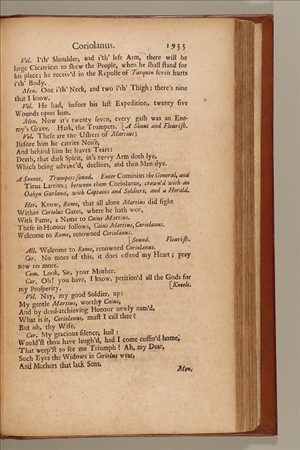 Coriolanus. 1933
Vol. I'th' Shoulder, and i'th' left Arm, there will be
large Cicatrices to shew the People, when he shall stand for
his place; he receiv'd in the Repulse of Tarquin seven hurts
i'th' Body.
Men. One i'th' Neck, and two i'th' Thigh; there's nine
that I know.
Vol. He had, before his last Expedition, twenty five
Wounds upon him.
Men. Now it's twenty seven, every gash was an Ene-
my's Grave. Hark, the Trumpets. [A Shout and Flourish.
Vol. These are the Ushers of Martius;
Before him he carries Noise,
And behind him he leaves Tears:
Death, that dark Spirit, in's nervy Arm doth lye,
Which being advanc'd, declines, and then Men dye.
A Sennet. Trumpets sound. Enter Cominius the General, and
Titus Lartius; between them Coriolanus, crown'd with an
Oaken Garland, with Captains and Soldiers, and a Herald.
Her. Know, Rome, that all alone Martius did fight
Within Corioles Gates, where he hath won,
With Fame, a Name to Caius Martius.
These in Honour follows, Caius Martius, Coriolanus.
Welcome to Rome, renowned Coriolanus.
[Sound. Flourish.
All. Welcome to Rome, renowned Coriolanus.
Cor. No more of this, it does offend my Heart; pray
now no more.
Com. Look, Sir, your Mother.
Cor. Oh! you have, I know, petition'd all the Gods for
my Prosperity. [Kneels.
Vol. Nay, my good Soldier, up:
My gentle Martius, worthy Caius,
And by deed-atchieving Honour newly nam'd,
What is it, Coriolanus, must I call thee?
But oh, thy Wife,
Cor. My gracious silence, hail:
Would'st thou have laugh'd, had I come coffin'd home,
That weep'st to see me Triumph? Ah, my Dear,
Such Eyes the Widows in Corioles wear,
And Mothers that lack Sons.
Men.